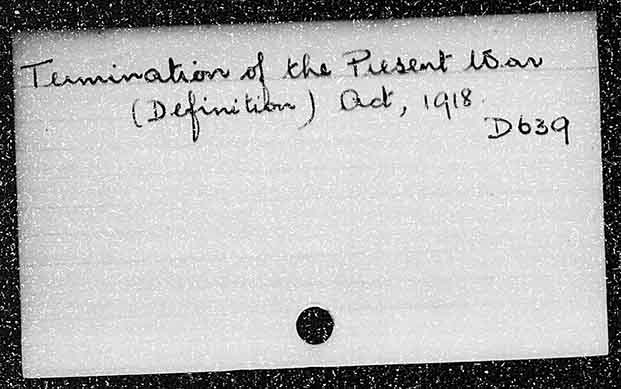 Termination of the Present War
(Definition) Act, 1918.
D639